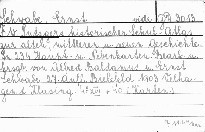 Schwabe, Ernst vide 
F. W. Putzgers historischer Schul-Atlas
zur alten, mittleren u. neuen Geschichte.
In 234 Haupt- u. Nebenkarten. Bearb. u.
hrsgb. von Alfred Baldamus u. Ernst
Schwabe. 27. Aufl. Bielefeld 1903 Velha-
gen & Klasing 4°